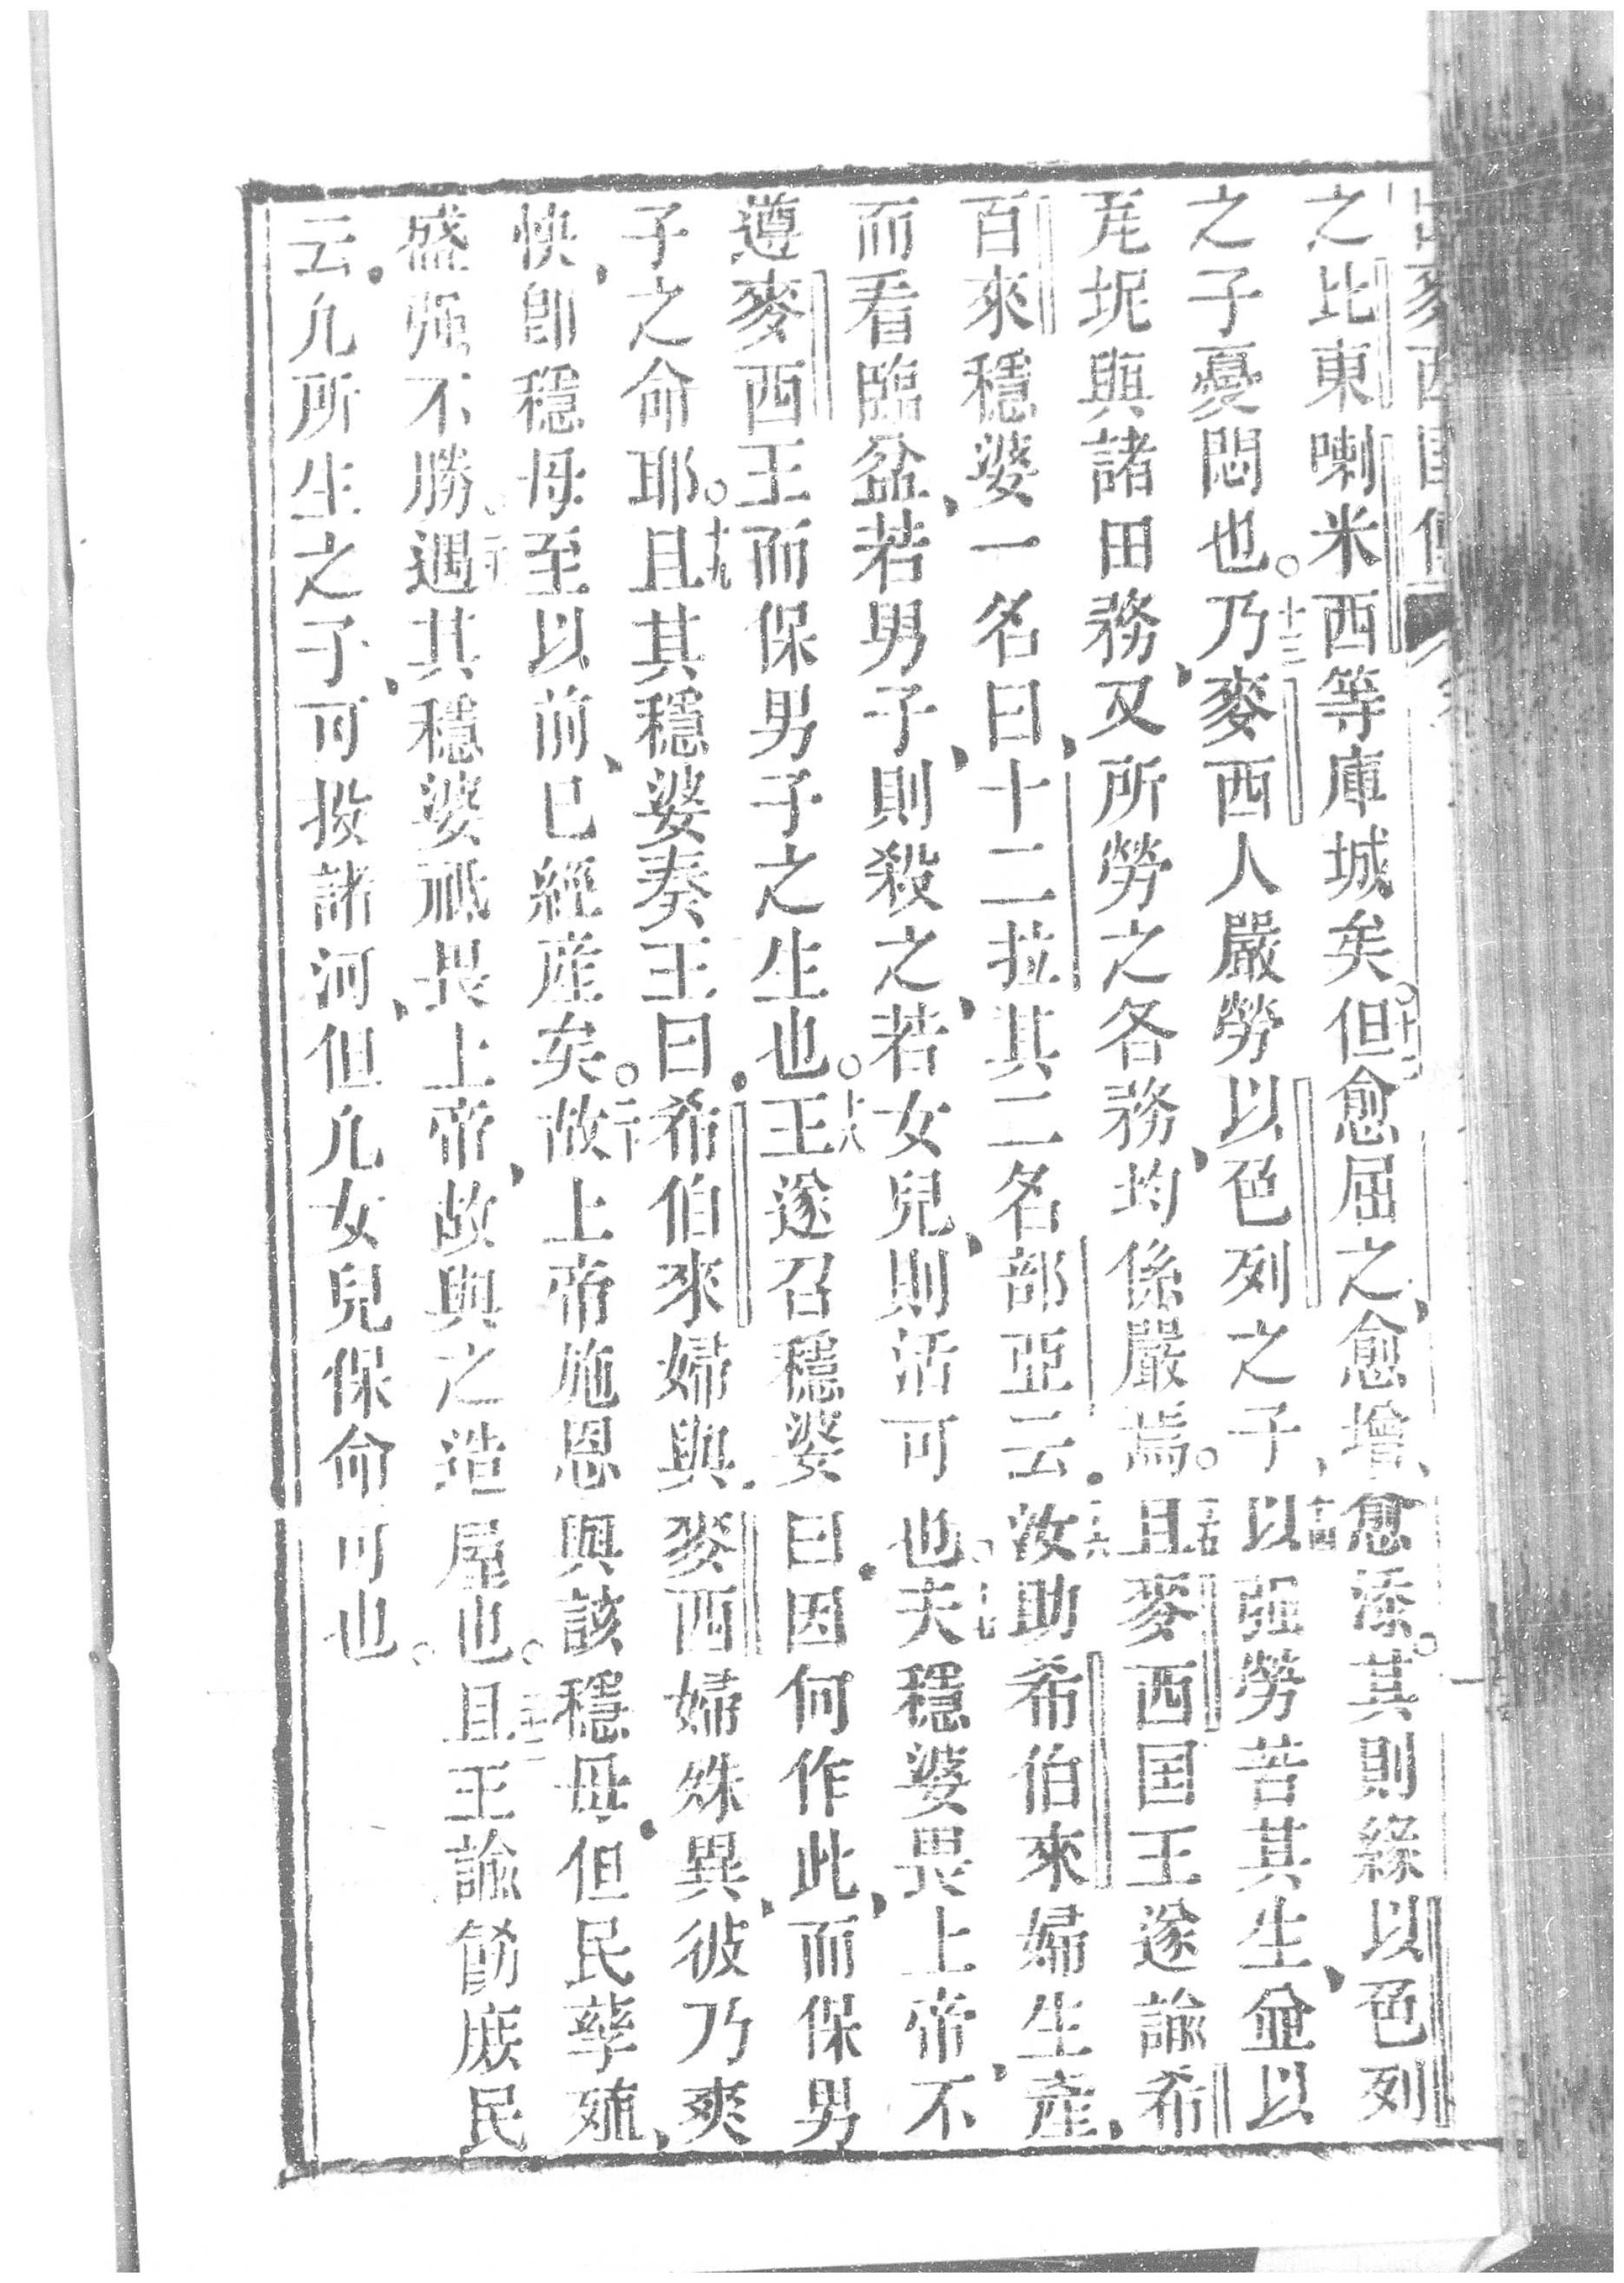 之比東喇米西等庫城矣。十二但愈屈之、愈增、愈添。其則緣以色列
之子憂悶也。十三乃麥西人嚴勞以色列之子、十四以强勞苦其生、並以
㡯坭與諸田務、又所勞之各務、均係嚴焉。十五且麥西国王遂諭希
百來穩婆一名曰、十二拉其二名部亞云、十六汝助希伯來婦生產、
而看臨盆、若男子、則殺之、若女兒、則活可也。十七夫穩婆畏上帝、不
遵麥西王而保男子之生也。十八王遂召穩婆曰、因何作此、而保男
子之命耶。十九且其穩婆奏王曰、希伯來婦與麥西婦殊異、彼乃爽
快、卽穩母至以前、已經產矣。二十故上帝施恩與該穩母、但民孳䟽、
盛强不勝。二一遇其穩婆祗畏上帝、故與之造屋也。二二且王諭飭庶民
云、凡所生之子、可投諸河、但凡女兒保命可也。